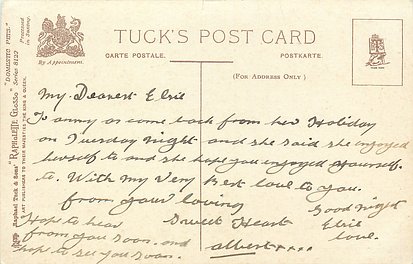 TUCK'S POST CARD
CARTE POSTALE.
POSTKARTE.
By Appointment.
(For Address Only)
Raphael Tuck & Sons' "RAPHALETTE GLOSSO" Series 8122 "DOMESTIC PETS."
ART PUBLISHERS TO THEIR MAJESTIES THE KING & QUEEN.
Processed in Saxony.
My Dearest Elsie
To anny as come back from her Holiday
on Tuesday night and she said she enjoyed
herself to and she hope you enjoyed yourself.
to. With my very Best love to you.
from your loving Good night
Sweet Heart Elsie
albert xxxx love.
Hope to hear
from you soon. and
hope to see you soon